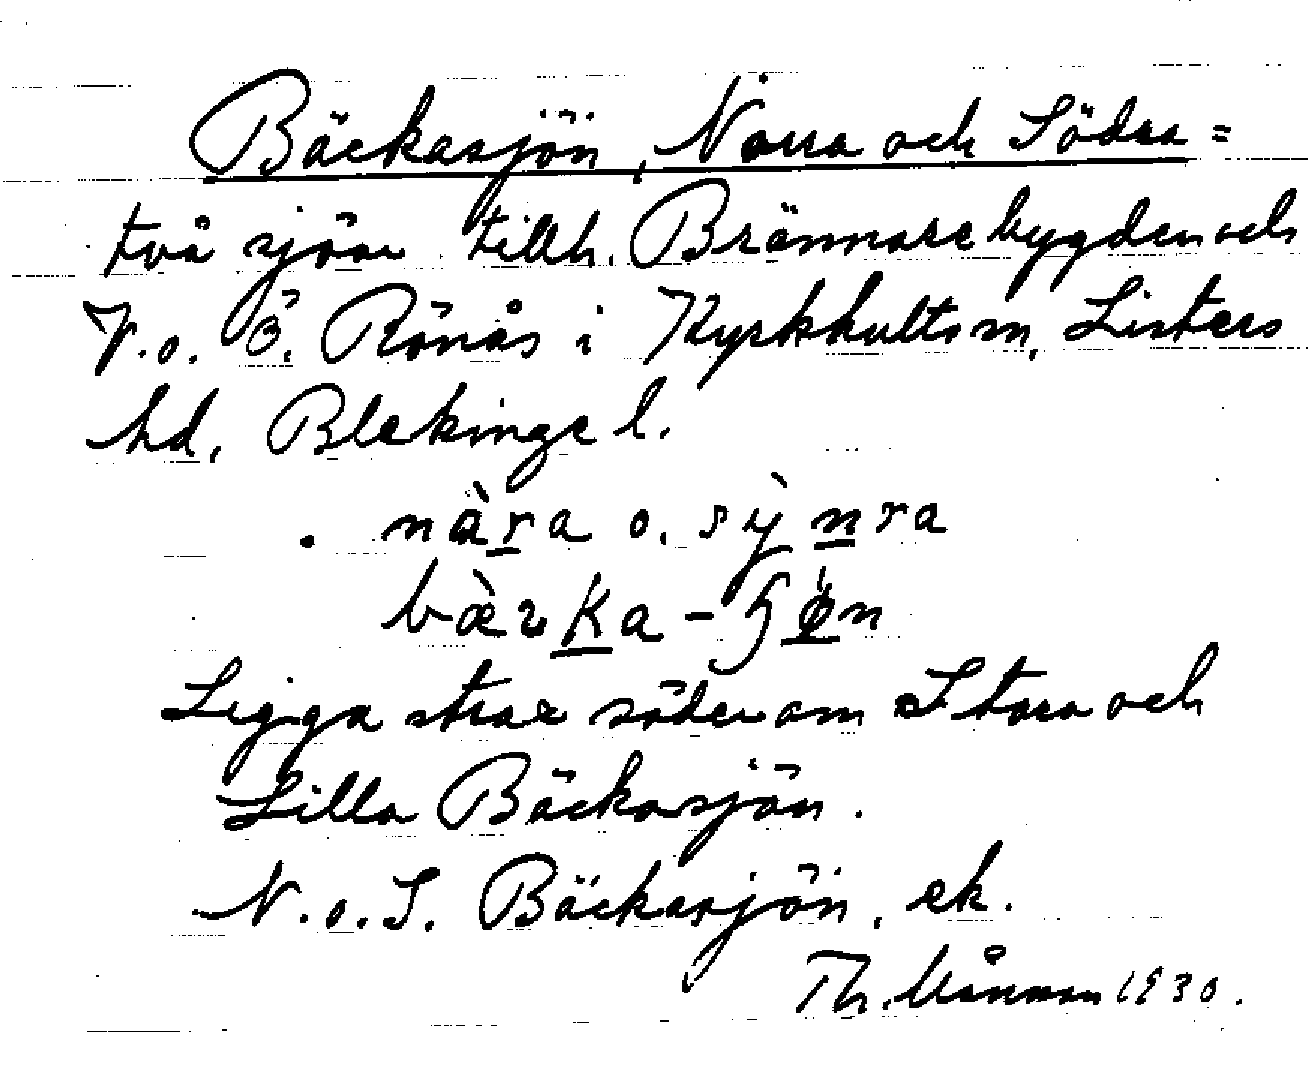 Bäckasjön, Norra och Södra =
två sjöar tillh. Brännarebygden och
V. o. Ö. Rönås i Kyrkhults sn, Listers
hd, Blekinge l.
nàra o. sỳnra
bæ̀ka-ɧön
Ligga strax söder om Stora och
Lilla Bäckasjön.
N. o. S. Bäckasjön, ek.
Th. 1930.